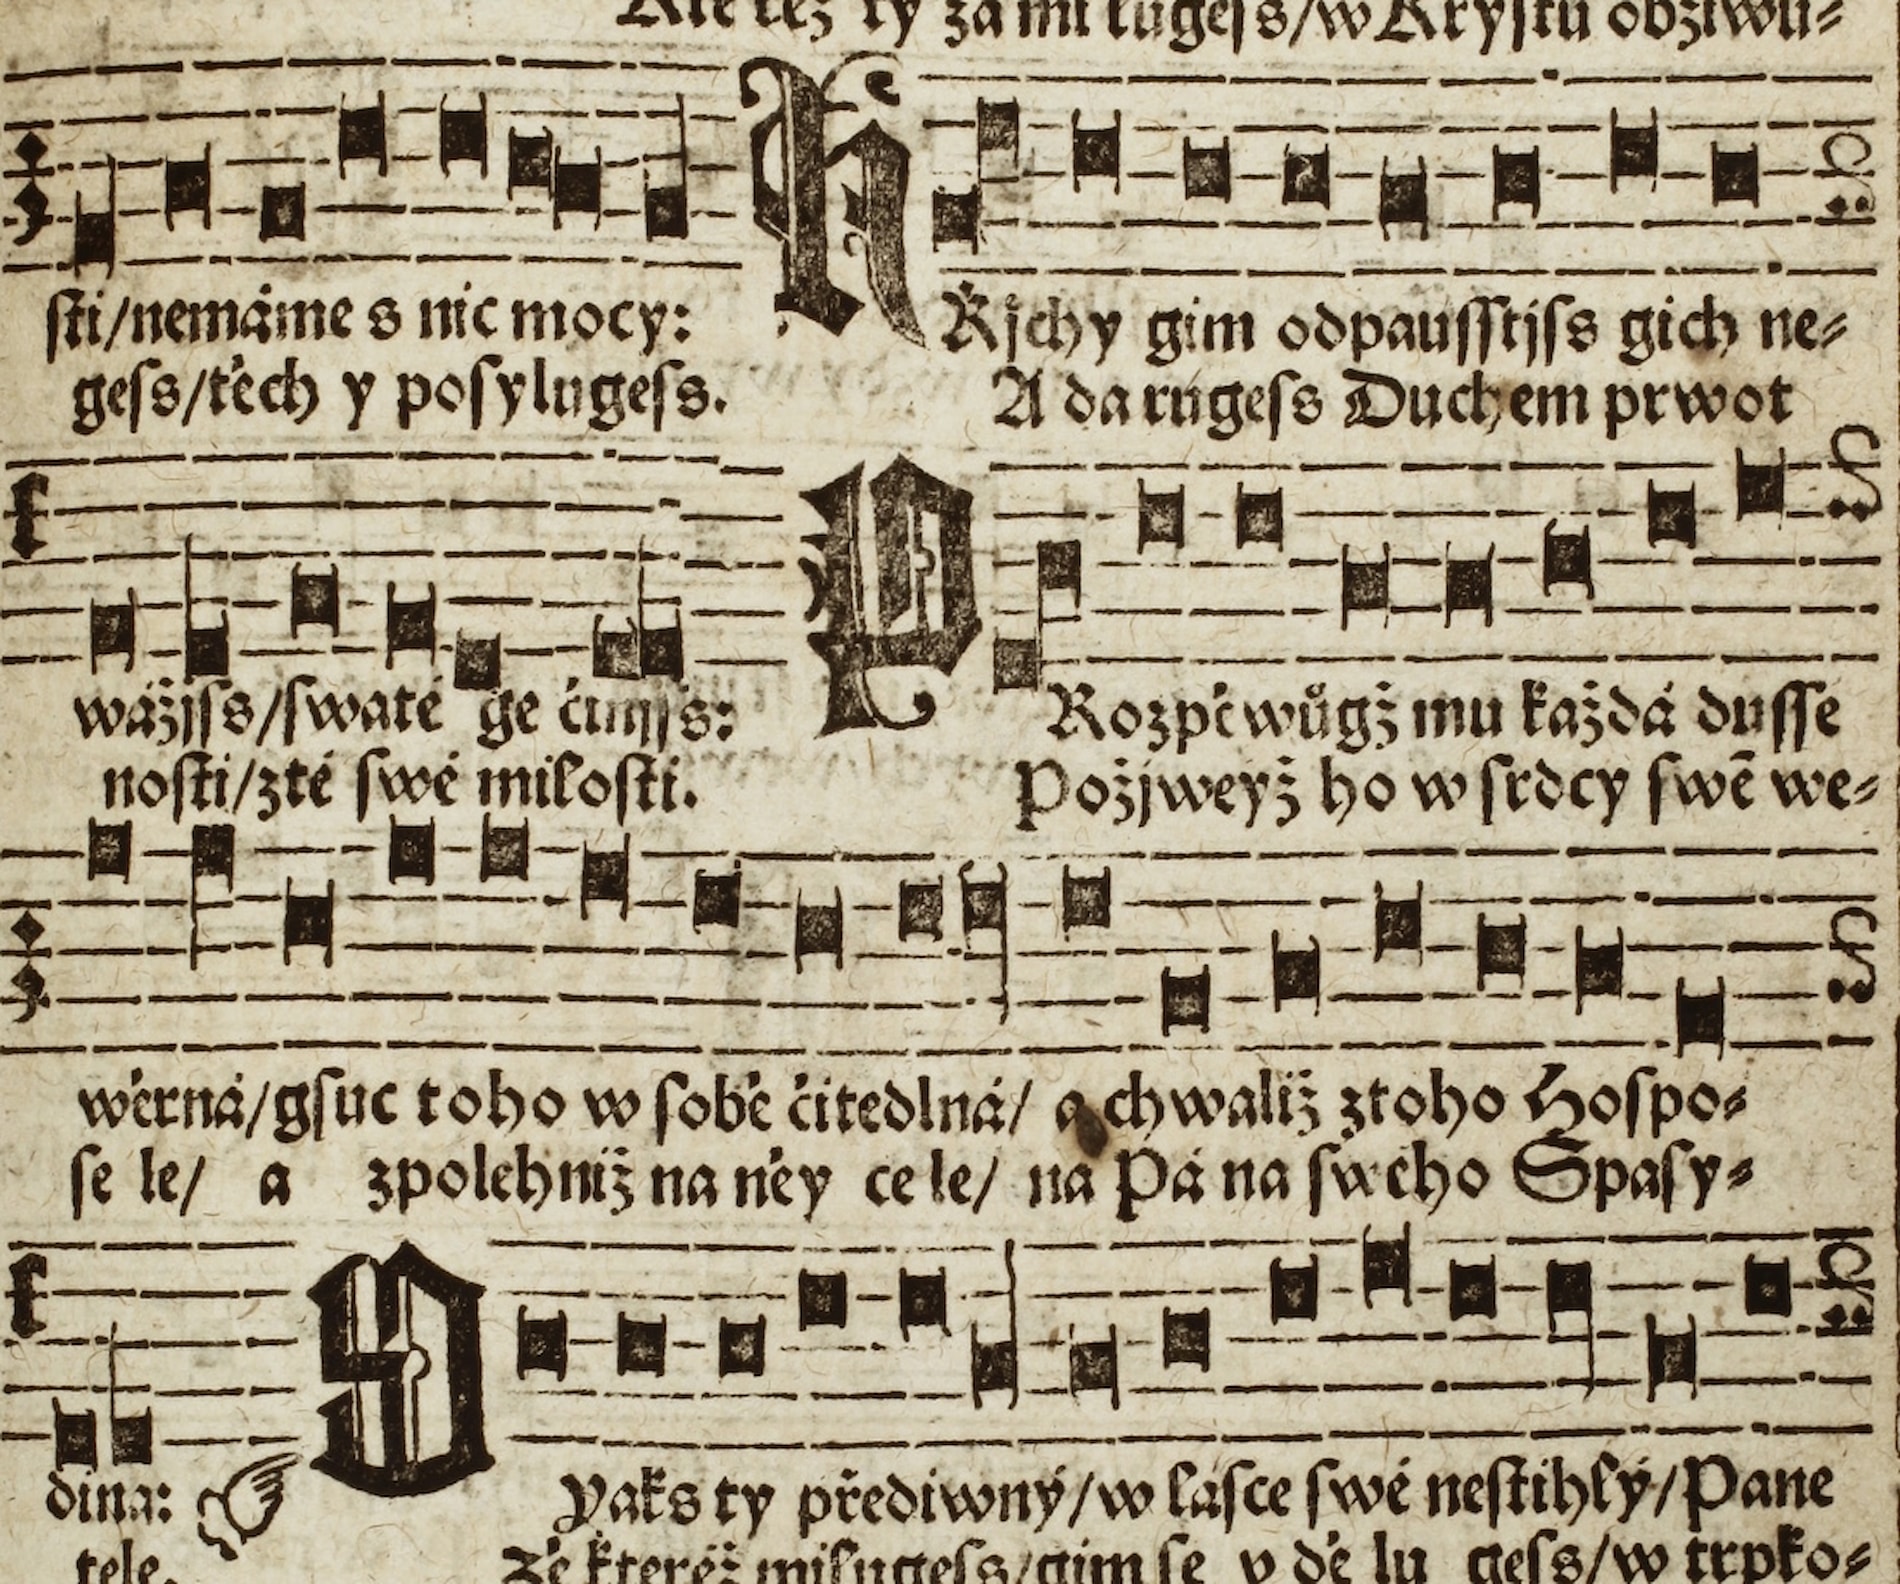 Ale též ty za mi lugeſs/w Kryſtu obžiwu⸗
ſti/nemáme s nic mocy: Ržjchy gim odpauſſtjſs gich ne⸗
geſs/těch y poſylugeſs. A da rúgeſs Duchem prwot
wážjſs/ſwaté ge činjſs: Rozpěwůgž mu každá duſſe
noſti/zté ſwé miloſti. Požjweyž ho w ſrdcy ſwē we⸗
wěrná/gſuc toho w ſobě čitedlná/ a chwaliž ztoho Hoſpo⸗
ſe le/ a zpolehniž na něy ce le/ na Pá na ſwého Spaſy⸗
dina: Yaks ty přediwný/w láſce ſwé neſtihlý/Pane
tele. Ze kteréž milugeſs/gim ſe v dě lu geſs/w trpko⸗